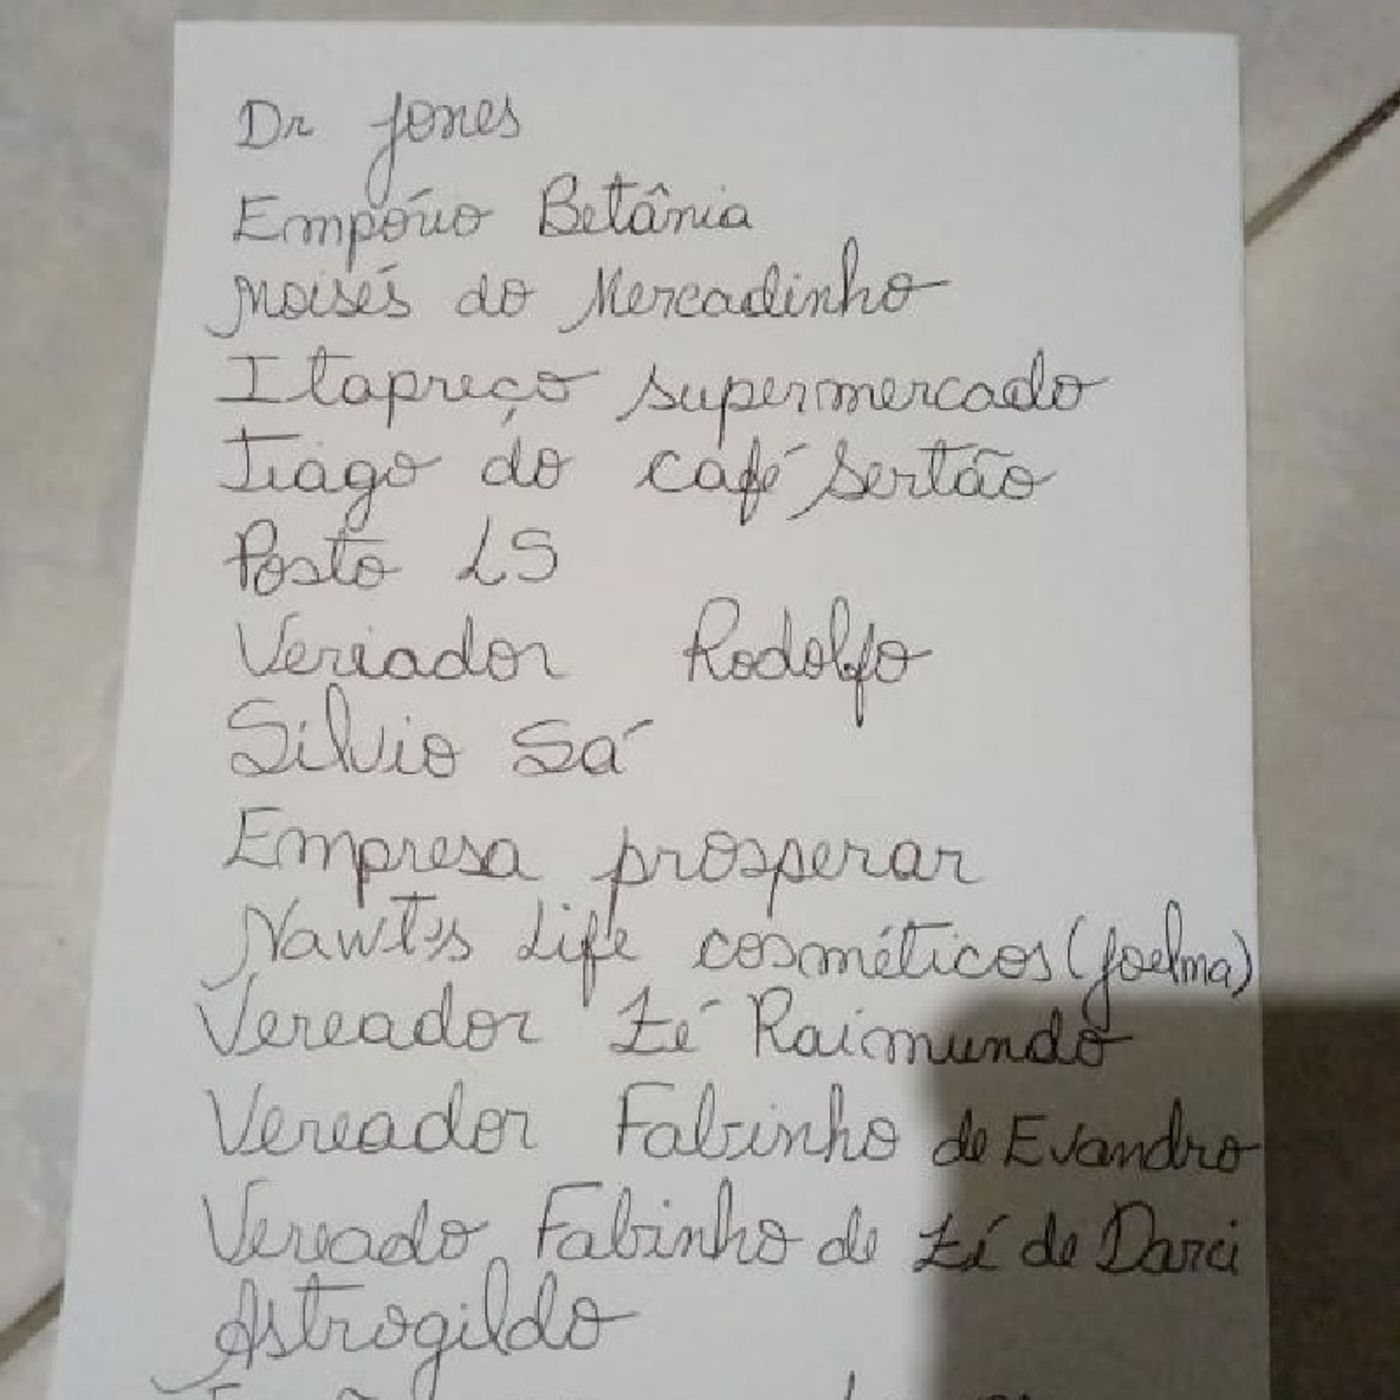 Dr Jones
Empório Betânia
Moisés do Mercadinho
Itapreço supermercado
Tiago do café Sertão
Posto LS
Veriador Rodolfo
Silvio Sá
Empresa prosperar
Nawt's Life cosméticos (Joelma)
Vereador Zé Raimundo
Vereador Fabinho de Evandro
Vereado Fabinho de Zé de Darci
Astrogildo